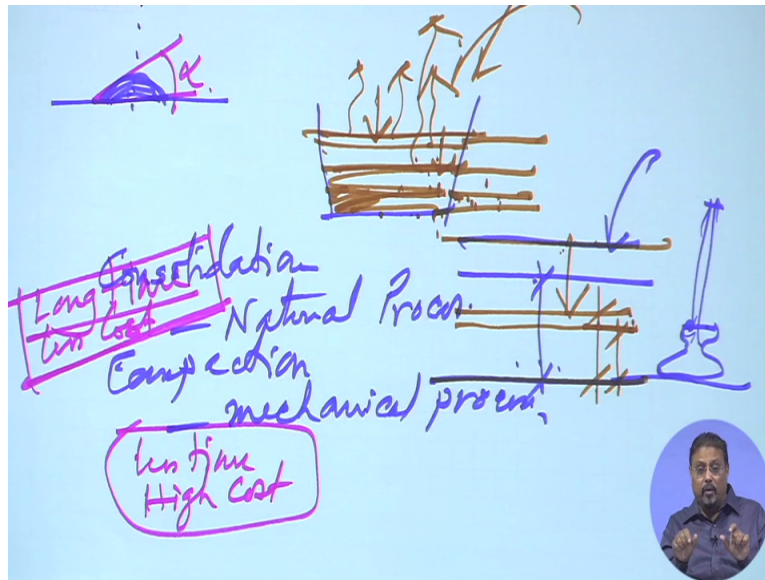 α.
Consolidation
Long Time
Less Cost
– Natural Process.
Compaction
– mechanical process,
Less time
High Cost